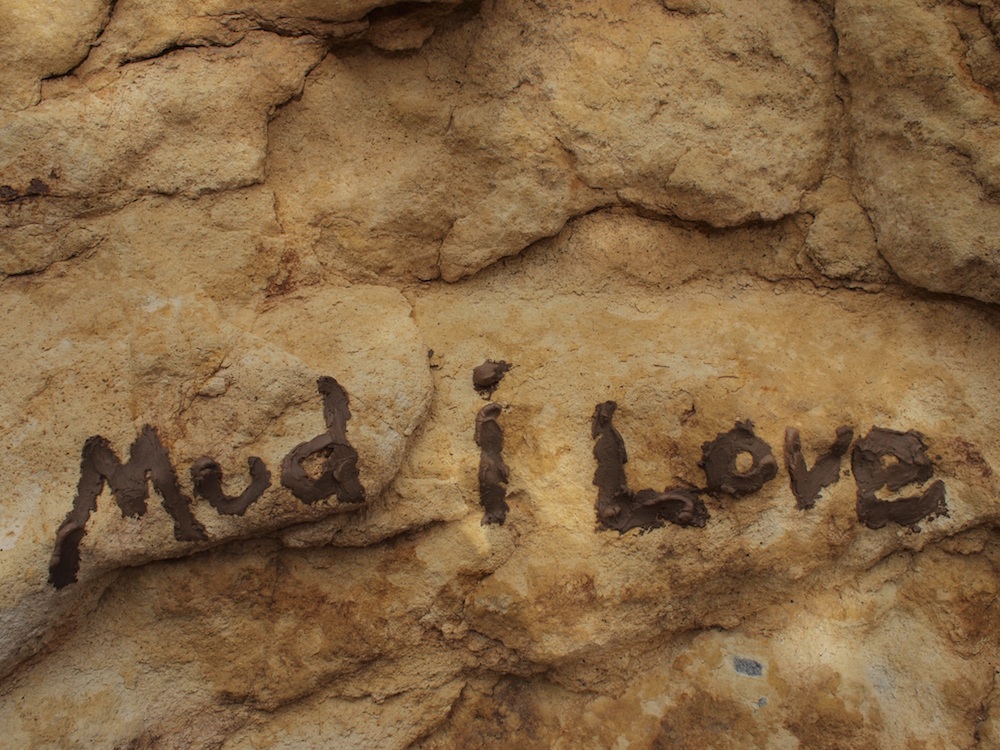 Mud i Love